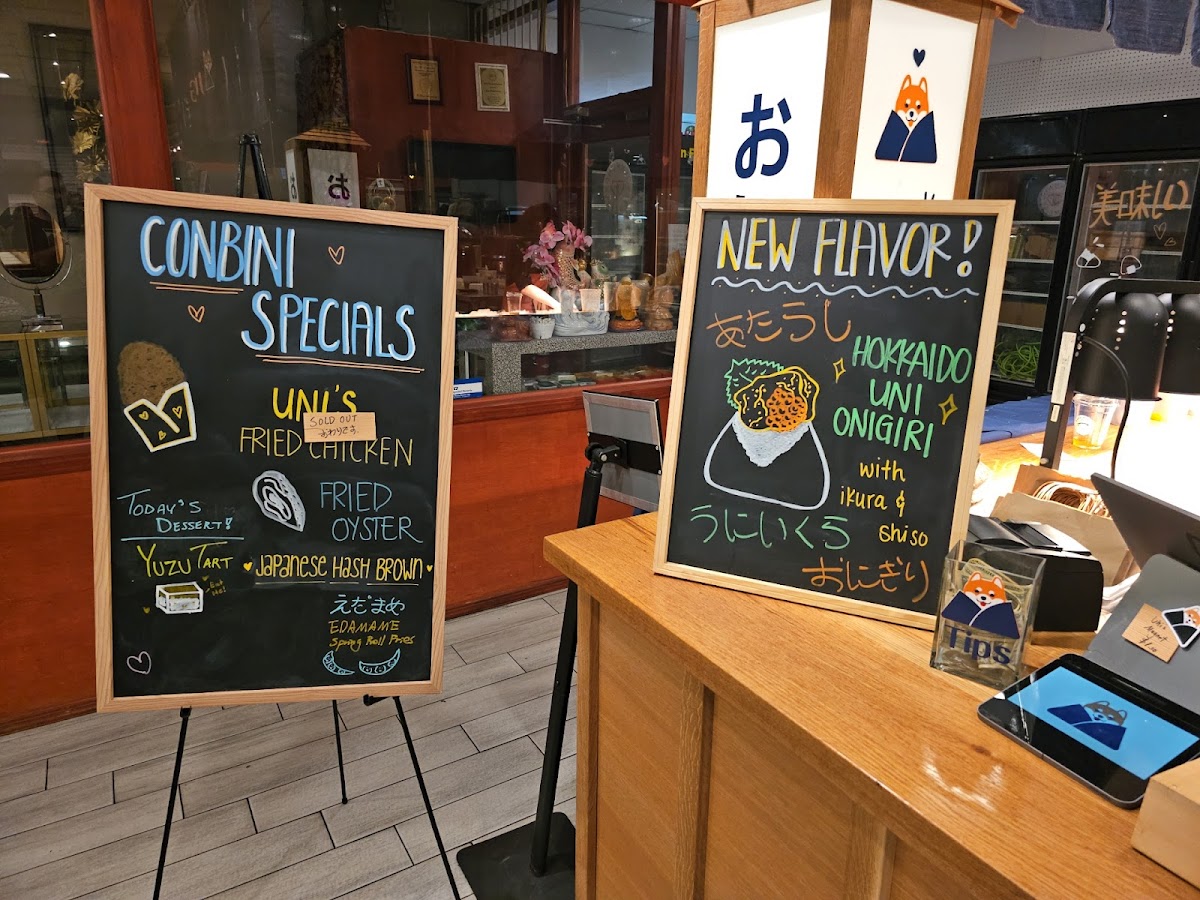 CONBINI
SPECIALS
UNI'S
SOLD OUT
おわりです
FRIED CHICKEN
FRIED
OYSTER
TODAY'S
DESSERT!
YUZU TART
Eat
Me!
JAPANESE HASH BROWN
えだまめ
EDAMAME
Spring Roll Pcies
お
は
NEW FLAVOR!
あたらし
HOKKAIDO
UNI
ONIGIRI
with
ikura &
shiso
うにいくら
おにぎり
Tips
美味しい